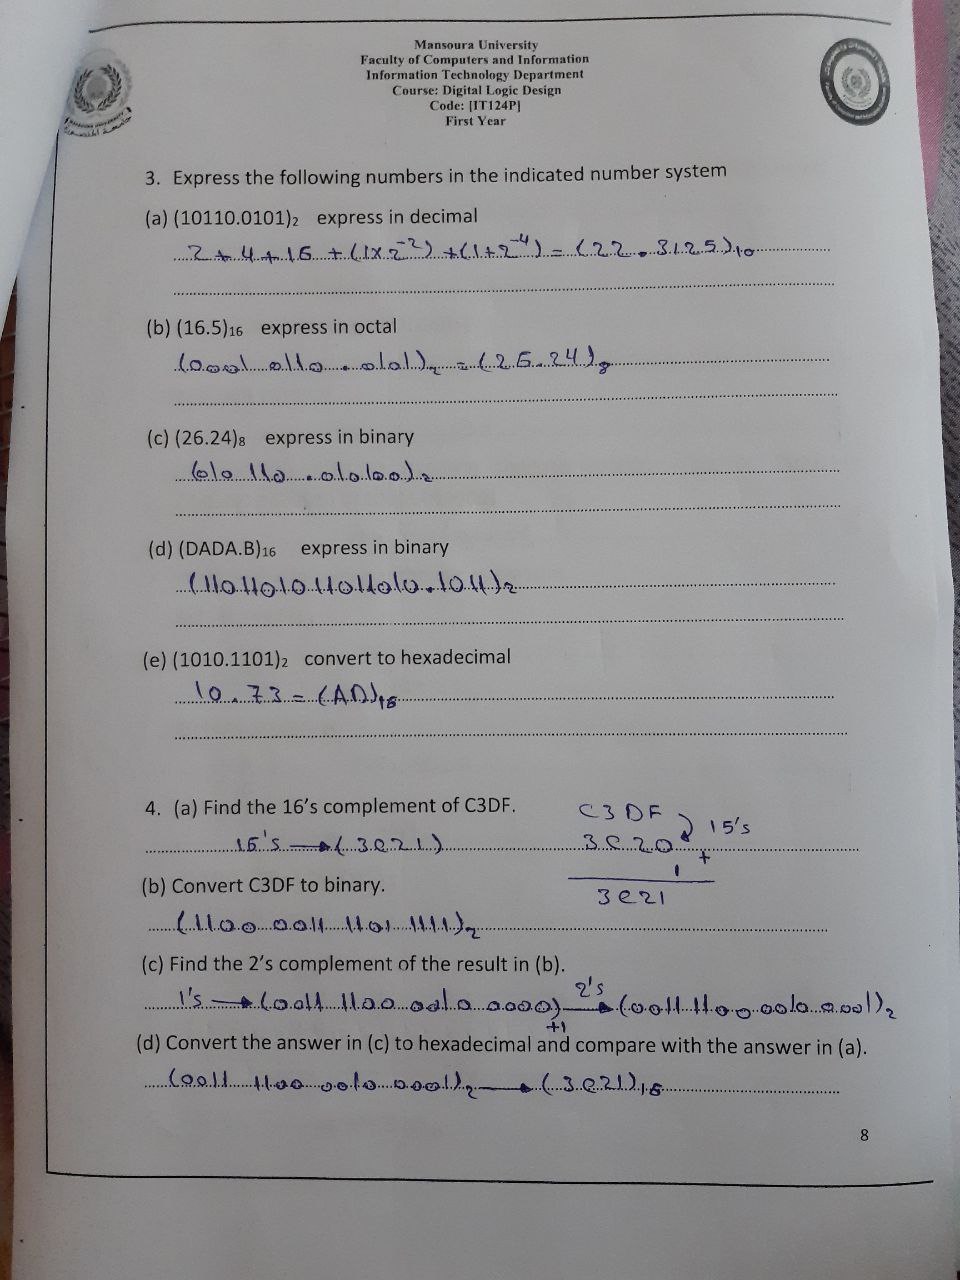 Mansoura University
Faculty of Computers and Information
Information Technology Department
Course: Digital Logic Design
Code: [IT124P]
First Year
3. Express the following numbers in the indicated number system
(a) (10110.0101)2 express in decimal
2 + 4 + 16 + (1×2^-2) + (1+2^-4) = (22.3125)10
(b) (16.5)16 express in octal
(0001 0110 . 0101)2 = (26.24)8
(c) (26.24)8 express in binary
(010 110 . 010100)2
(d) (DADA.B)16 express in binary
(1101101011011010.1011)2
(e) (1010.1101)2 convert to hexadecimal
10.73 = (AD)16
4. (a) Find the 16's complement of C3DF.
C3DF
15's
16's → (3C21)
3C20
+
1
3C21
(b) Convert C3DF to binary.
(1100 0011 1101 1111)2
(c) Find the 2's complement of the result in (b).
1's → (0011 1100 0010 0000) +1 2's → (0011 1100 0010 0001)2
(d) Convert the answer in (c) to hexadecimal and compare with the answer in (a).
(0011 1100 0010 0001)2 → (3C21)16
8